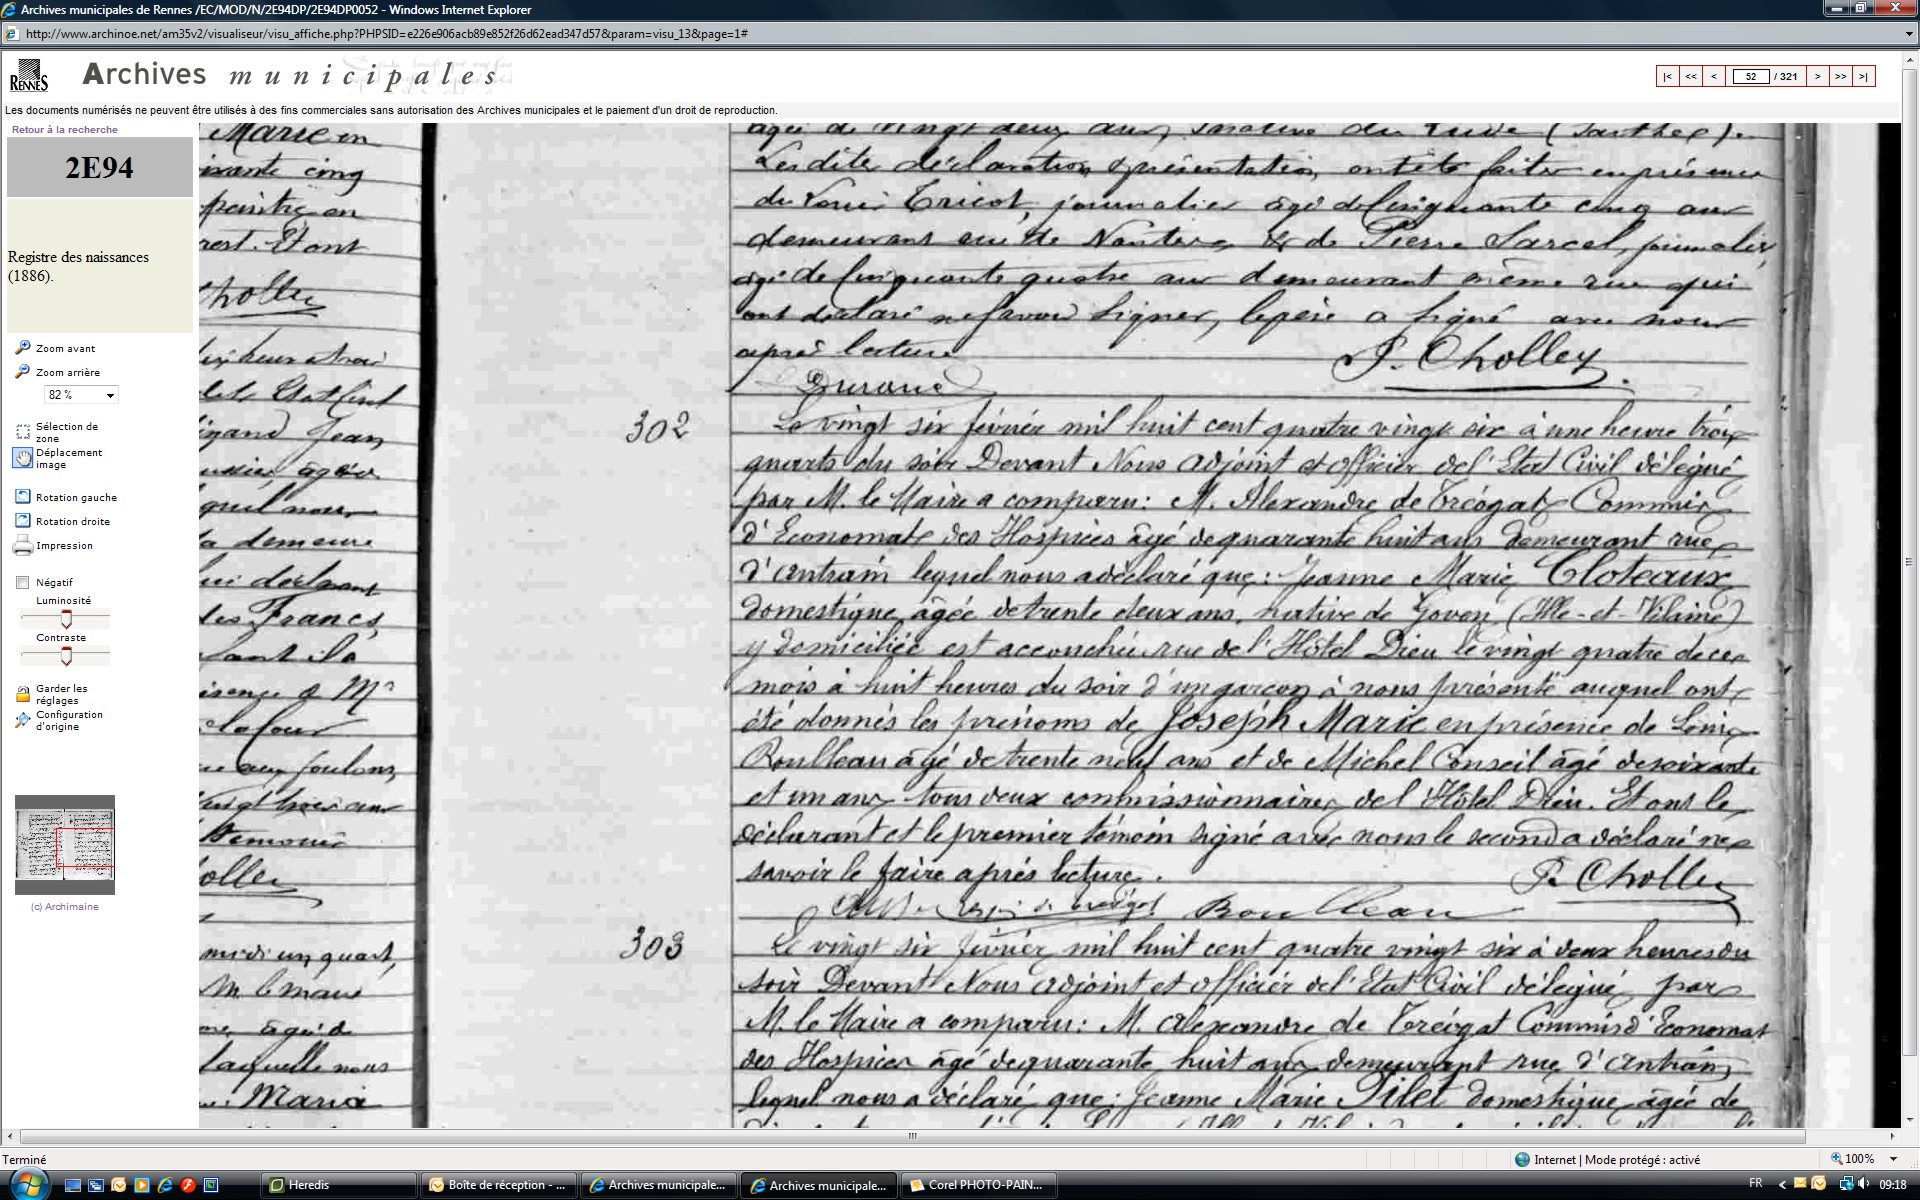 Archives municipales de Rennes /EC/MOD/N/2E94DP/2E94DP0052 - Windows Internet Explorer
http://www.archinoe.net/am35v2/visualiseur/visu_affiche.php?PHPSID=e226e906acb89e852f26d62ead347d57&param=visu_13&page=1#
RENNES
Archives municipales
|< << < 52 / 321 > >> >|
Les documents numérisés ne peuvent être utilisés à des fins commerciales sans autorisation des Archives municipales et le paiement d'un droit de reproduction.
Retour à la recherche
2E94
Registre des naissances
(1886).
Zoom avant
Zoom arrière
82 %
Sélection de
zone
Déplacement
image
Rotation gauche
Rotation droite
Impression
Négatif
Luminosité
Contraste
Garder les
réglages
Configuration
d'origine
(c) Archimaine
Marie en
ixante cinq
peintre en
rest. Et ont
Cholley
Jean
quel nous
la demeure
des Francs
M.
Cholley
midi un quart,
M. le maire
laquelle nous
Maria
âgée de vingt deux ans, native du Lude (Sarthe).
Les dites déclaration & présentation ont été faites en présence
de Louis Tricot, journalier âgé de cinquante cinq ans
demeurant rue de Nantes & de Pierre Sarcel, journalier,
âgé de cinquante quatre ans demeurant même rue qui
ont déclaré ne savoir signer, le père a signé avec nous
après lecture
P. Cholley
Durand
302
Le vingt six février mil huit cent quatre vingt six à une heure trois
quarts du soir Devant Nous adjoint et officier de l'Etat Civil délégué
par M. le Maire a comparu: M. Alexandre de Tréogat Commis
d'Economat des Hospices âgé de quarante huit ans demeurant rue
d'Antrain lequel nous a déclaré que: Jeanne Marie Cloteaux
domestique âgée de trente deux ans, native de Goven (Ille-et-Vilaine)
y domiciliée est accouchée rue de l'Hôtel Dieu le vingt quatre de ce
mois à huit heures du soir d'un garçon à nous présenté auquel ont
été donnés les prénoms de Joseph Marie en présence de Louis
Roulleau âgé de trente neuf ans et de Michel Conseil âgé de soixante
et un ans tous deux commissionnaires de l'Hôtel Dieu. Et ont le
déclarant et le premier témoin signé avec nous le second a déclaré ne
savoir le faire après lecture.
P. Cholley
de Tréogat Roulleau
303
Le vingt six février mil huit cent quatre vingt six à deux heures du
soir Devant Nous adjoint et officier de l'Etat Civil délégué par
M. le Maire a comparu: M. Alexandre de Tréogat Commis d'Economat
des Hospices âgé de quarante huit ans demeurant rue d'Antrain
lequel nous a déclaré que: Jeanne Marie Pilet domestique âgée de
Terminé
Internet | Mode protégé : activé
100%
Heredis
Boîte de réception - ...
Archives municipale...
Archives municipale...
Corel PHOTO-PAIN...
FR
09:18